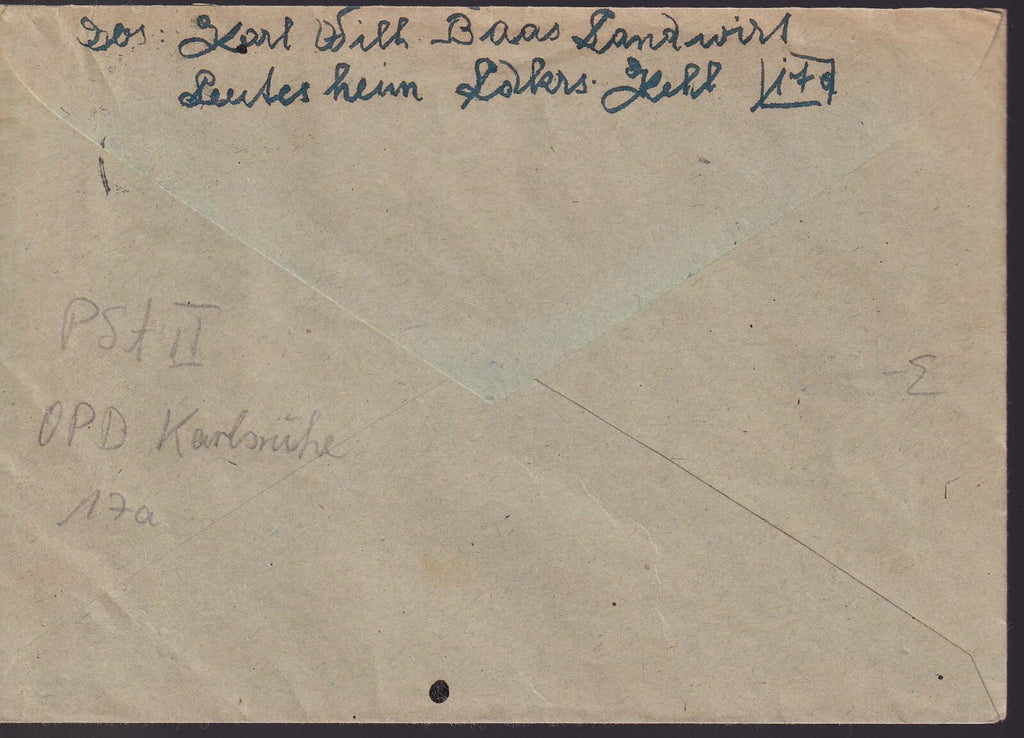 Abs: Karl Wilh. Baas Landwirt
Leutesheim Ldkrs. Kehl 17a
PSt II
OPD Karlsruhe
17a